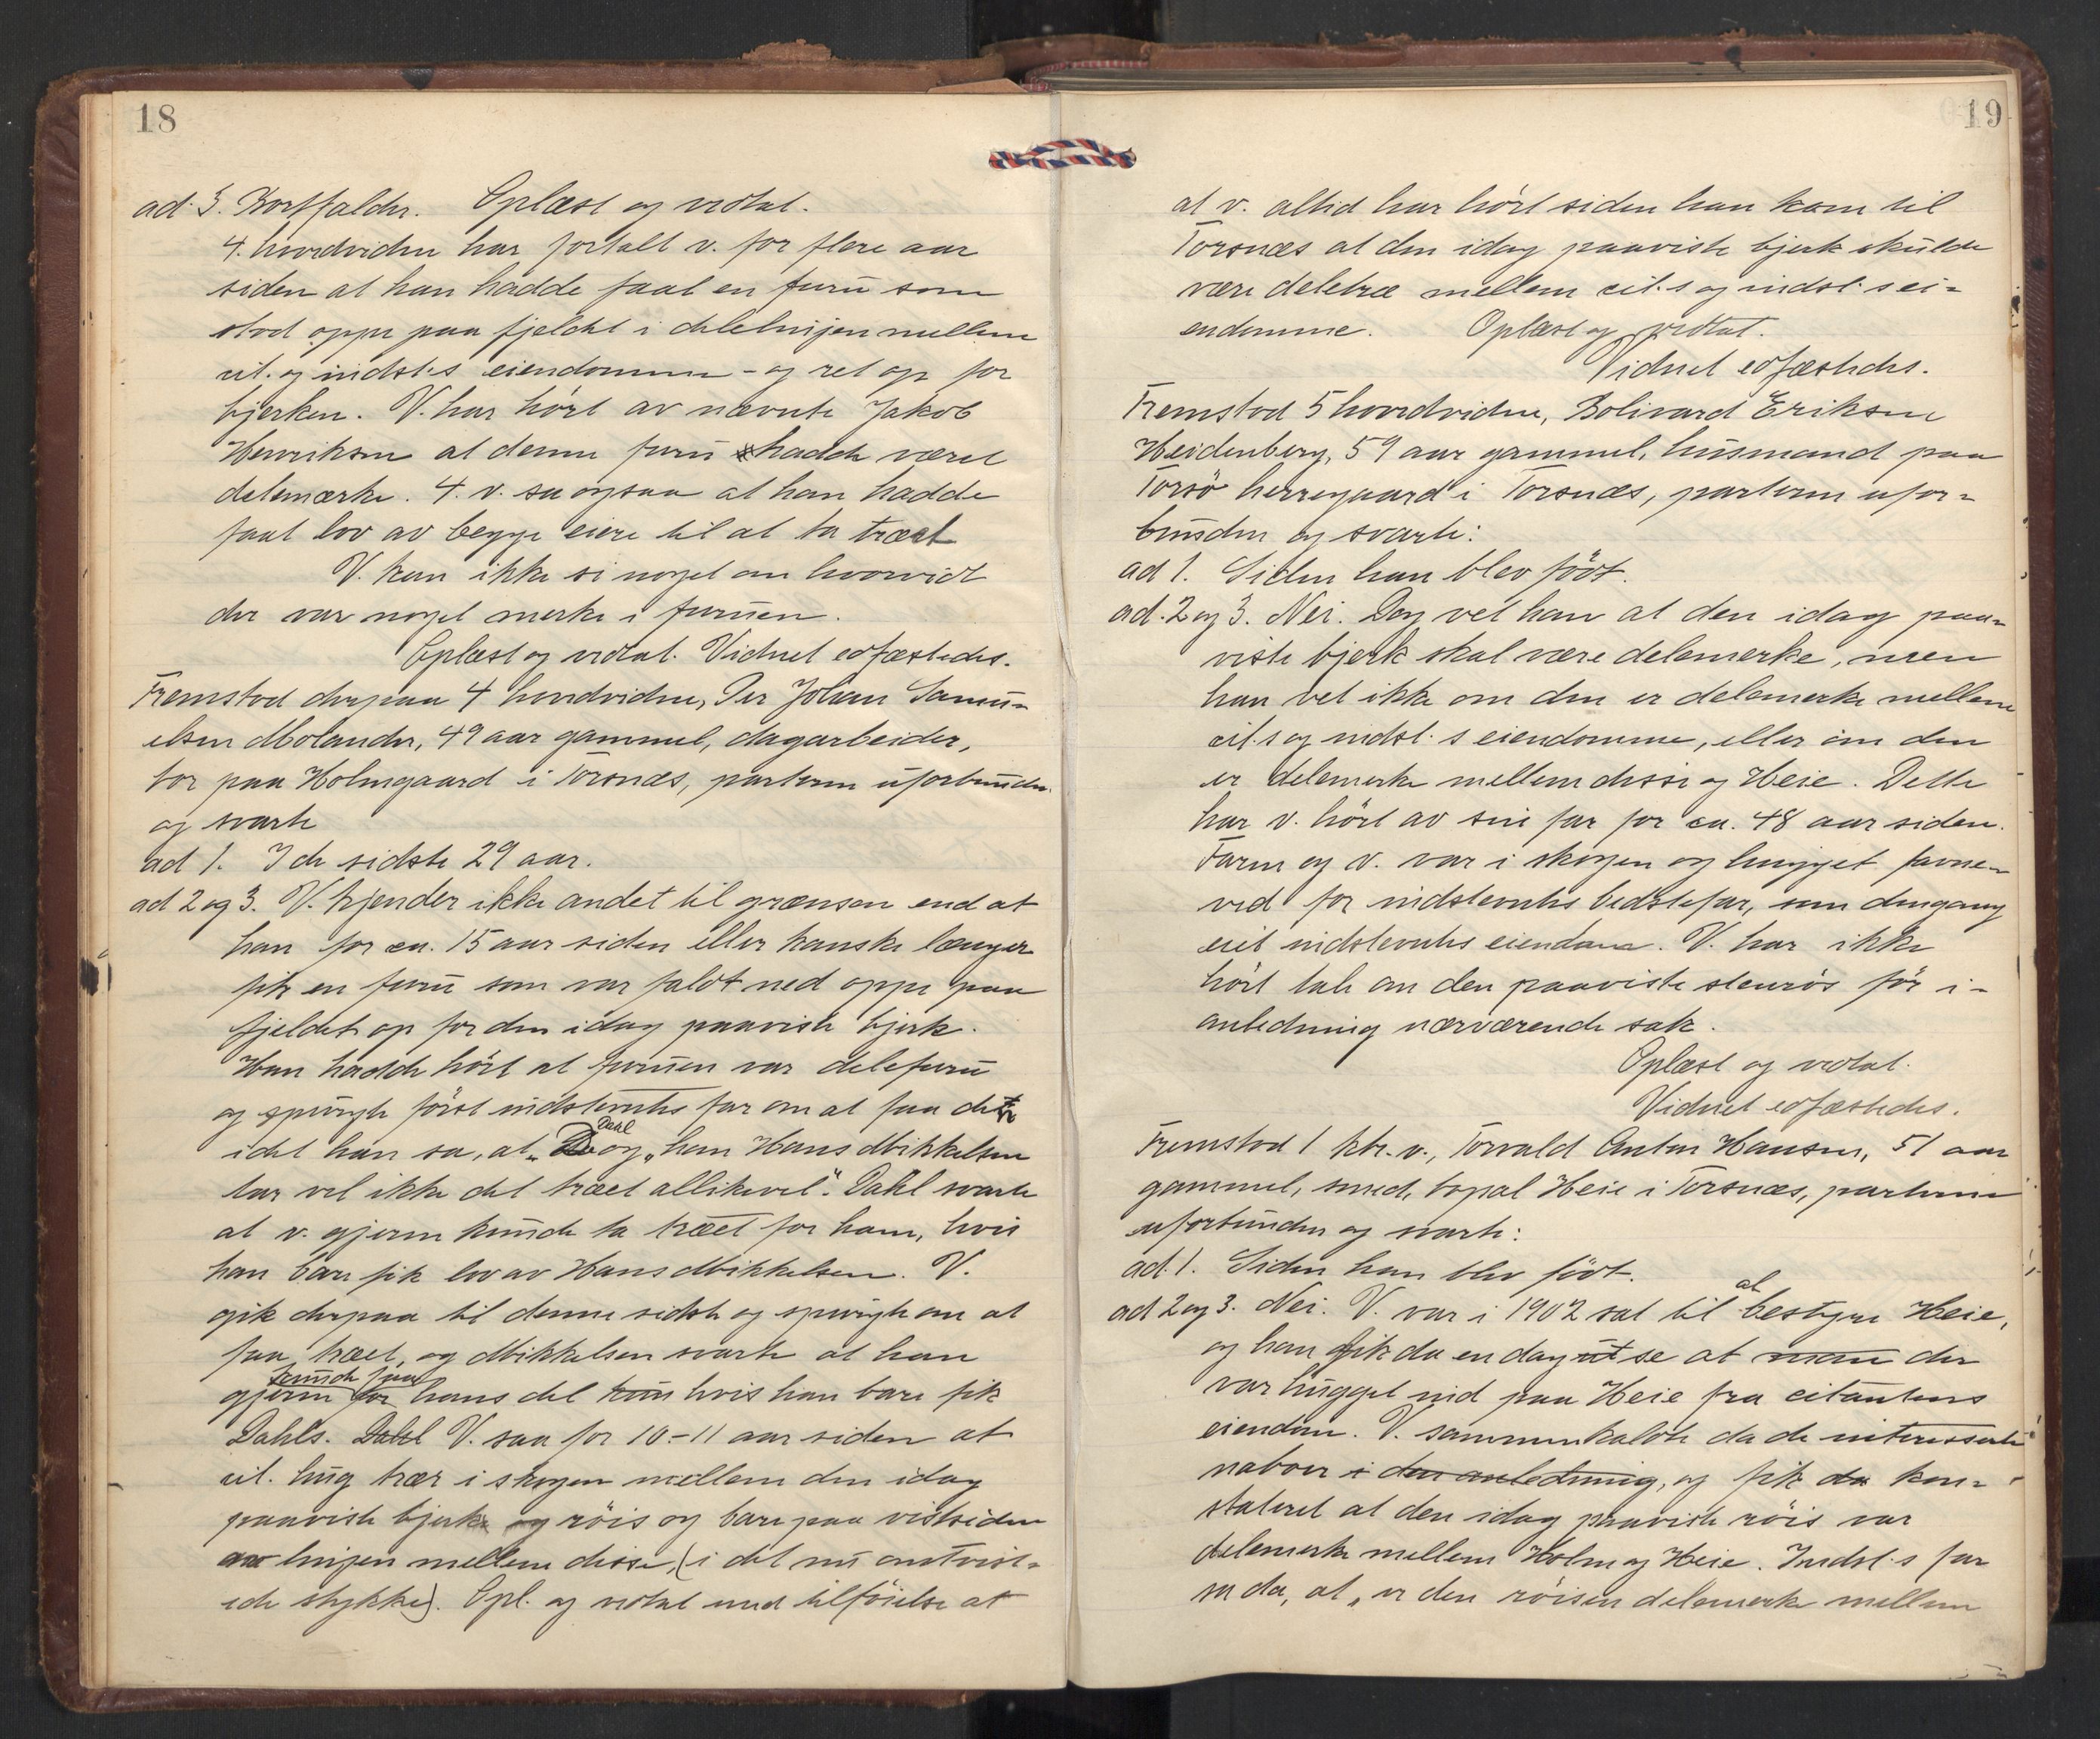 18
ad. 3. Bortfalder. Oplæst og vedtat.
4. hovedvidne har fortalt v. for flere aar
siden at han hadde faat en furu som
stod oppe paa fjeldet i delelinjen mellem
cit. og indst.s eiendomme - og ret op for
bjerken. V. har hört av nævnte Jakob
Henriksen at denne furu hadde været
delemærke. 4. v. sa ogsaa at han hadde
faat lov av begge eiere til at ta træet
V. kan ikke si noget om hvorvidt
der var noget merke i furuen.
Oplæst og vedtat. Vidnet edfæstedes.
Fremstod derpaa 4 hovedvidne, Per Johan Samu-
elsen Molander, 49 aar gammel, dagarbeider,
bor paa Holmgaard i Torsnæs, parterne uforbunden
og svarte
ad 1. I de sidste 29 aar.
ad 2 og 3. V. kjender ikke andet til grænsen end at
han for ca. 15 aar siden eller kanske længer
fik en furu som var faldt ned oppe paa
fjeldet op for den idag paaviste bjerk.
Han hadde hört at furuen var delefuru
og spurgte först indstevntes far om at faa det
idet han sa, at „Dahl og „han Hans Mikkelsen
tar vel ikke det træet allikevel". Dahl svarte
at v. gjerne kunde ta træet for ham, hvis
han bare fik lov av Hans Mikkelsen. V.
gik derpaa til denne sidste og spurgte om at
faa træet, og Mikkelsen svarte at han
kunde faa
gjerne for hans del kun hvis han bare fik
Dahls. Dahl V. saa for 10-11 aar siden at
cit. hug trær i skogen mellem den idag
paaviste bjerk og röis og bare paa vestsiden
av linjen mellem disse, (i det nu omtvist-
ede stykke). Opl. og vedtat med tilföielse at
19
at v. altid har hört siden han kom til
Torsnæs at den idag paaviste bjerk skulde
være deletræ mellem cit.s og indst.s ei-
endomme. Oplæst og vedtat.
Vidnet edfæstedes.
Fremstod 5 hovedvidne, Bolivard Eriksen
Heidenberg, 59 aar gammel, husmand paa
Torsö herregaard i Torsnæs, parterne ufor-
bunden og svarte:
ad 1. Siden han blev födt.
ad. 2 og 3. Nei. Dog vet han at den idag paa-
viste bjerk skal være delemerke, men
han vet ikke om den er delemerke mellem
cit.s og indst.s eiendomme, eller om den
er delemerke mellem disse og Heie. Dette
har v. hört av sin far for ca. 48 aar siden.
Faren og v. var i skogen og hugget favne-
ved for indstevntes bedstefar, som dengang
eiet indstevntes eiendom. V. har ikke
hört tale om den paaviste stenrös för i-
anledning nærværende sak.
Oplæst og vedtat.
Vidnet edfæstedes.
Fremstod 1 ktr. v., Torvald Anton Hansen, 51 aar
gammel, smed, bopæl Heie i Torsnæs, parterne
uforbunden og svarte:
ad. 1. Siden han blev födt.
at
ad 2 og 3. Nei. V. var i 1902 sat til bestyre Heie,
og han fik da en dag ut se at man der
var hugget ind paa Heie fra citantens
eiendom. V. sammenkaldte da de interesserte
naboer i den anledning, og fik da kon-
stateret at den idag paaviste röis var
delemerke mellem Holm og Heie. Indst.s far
sa da, at „er den röisen delemerke mellem